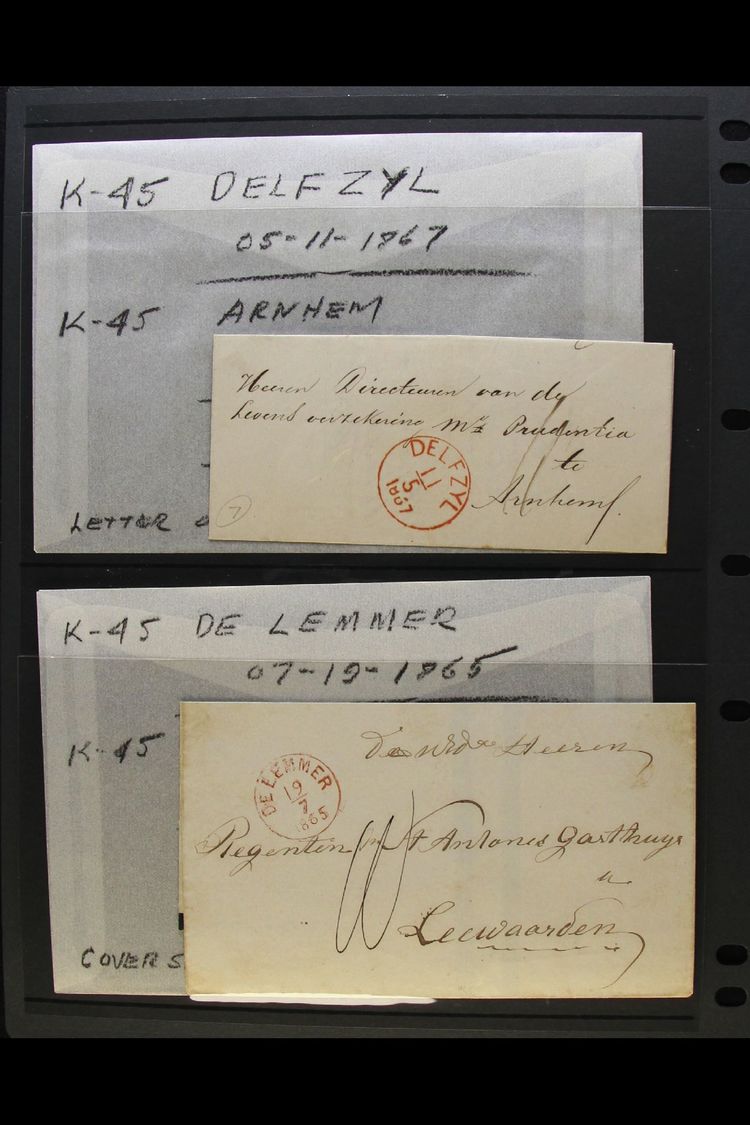 K-45 DELFZYL
05-11-1867
K-45 ARNHEM
Heeren Directeuren van de
Levens verzekering Mij Prudentia
te
Arnhem
DELFZYL
11
5
1867
7
LETTER
K-45 DE LEMMER
07-19-1865
K-45
Heeren
DE LEMMER
19
7
1865
Regenten St Antonis Gasthuys
Leeuwaarden
COVERS